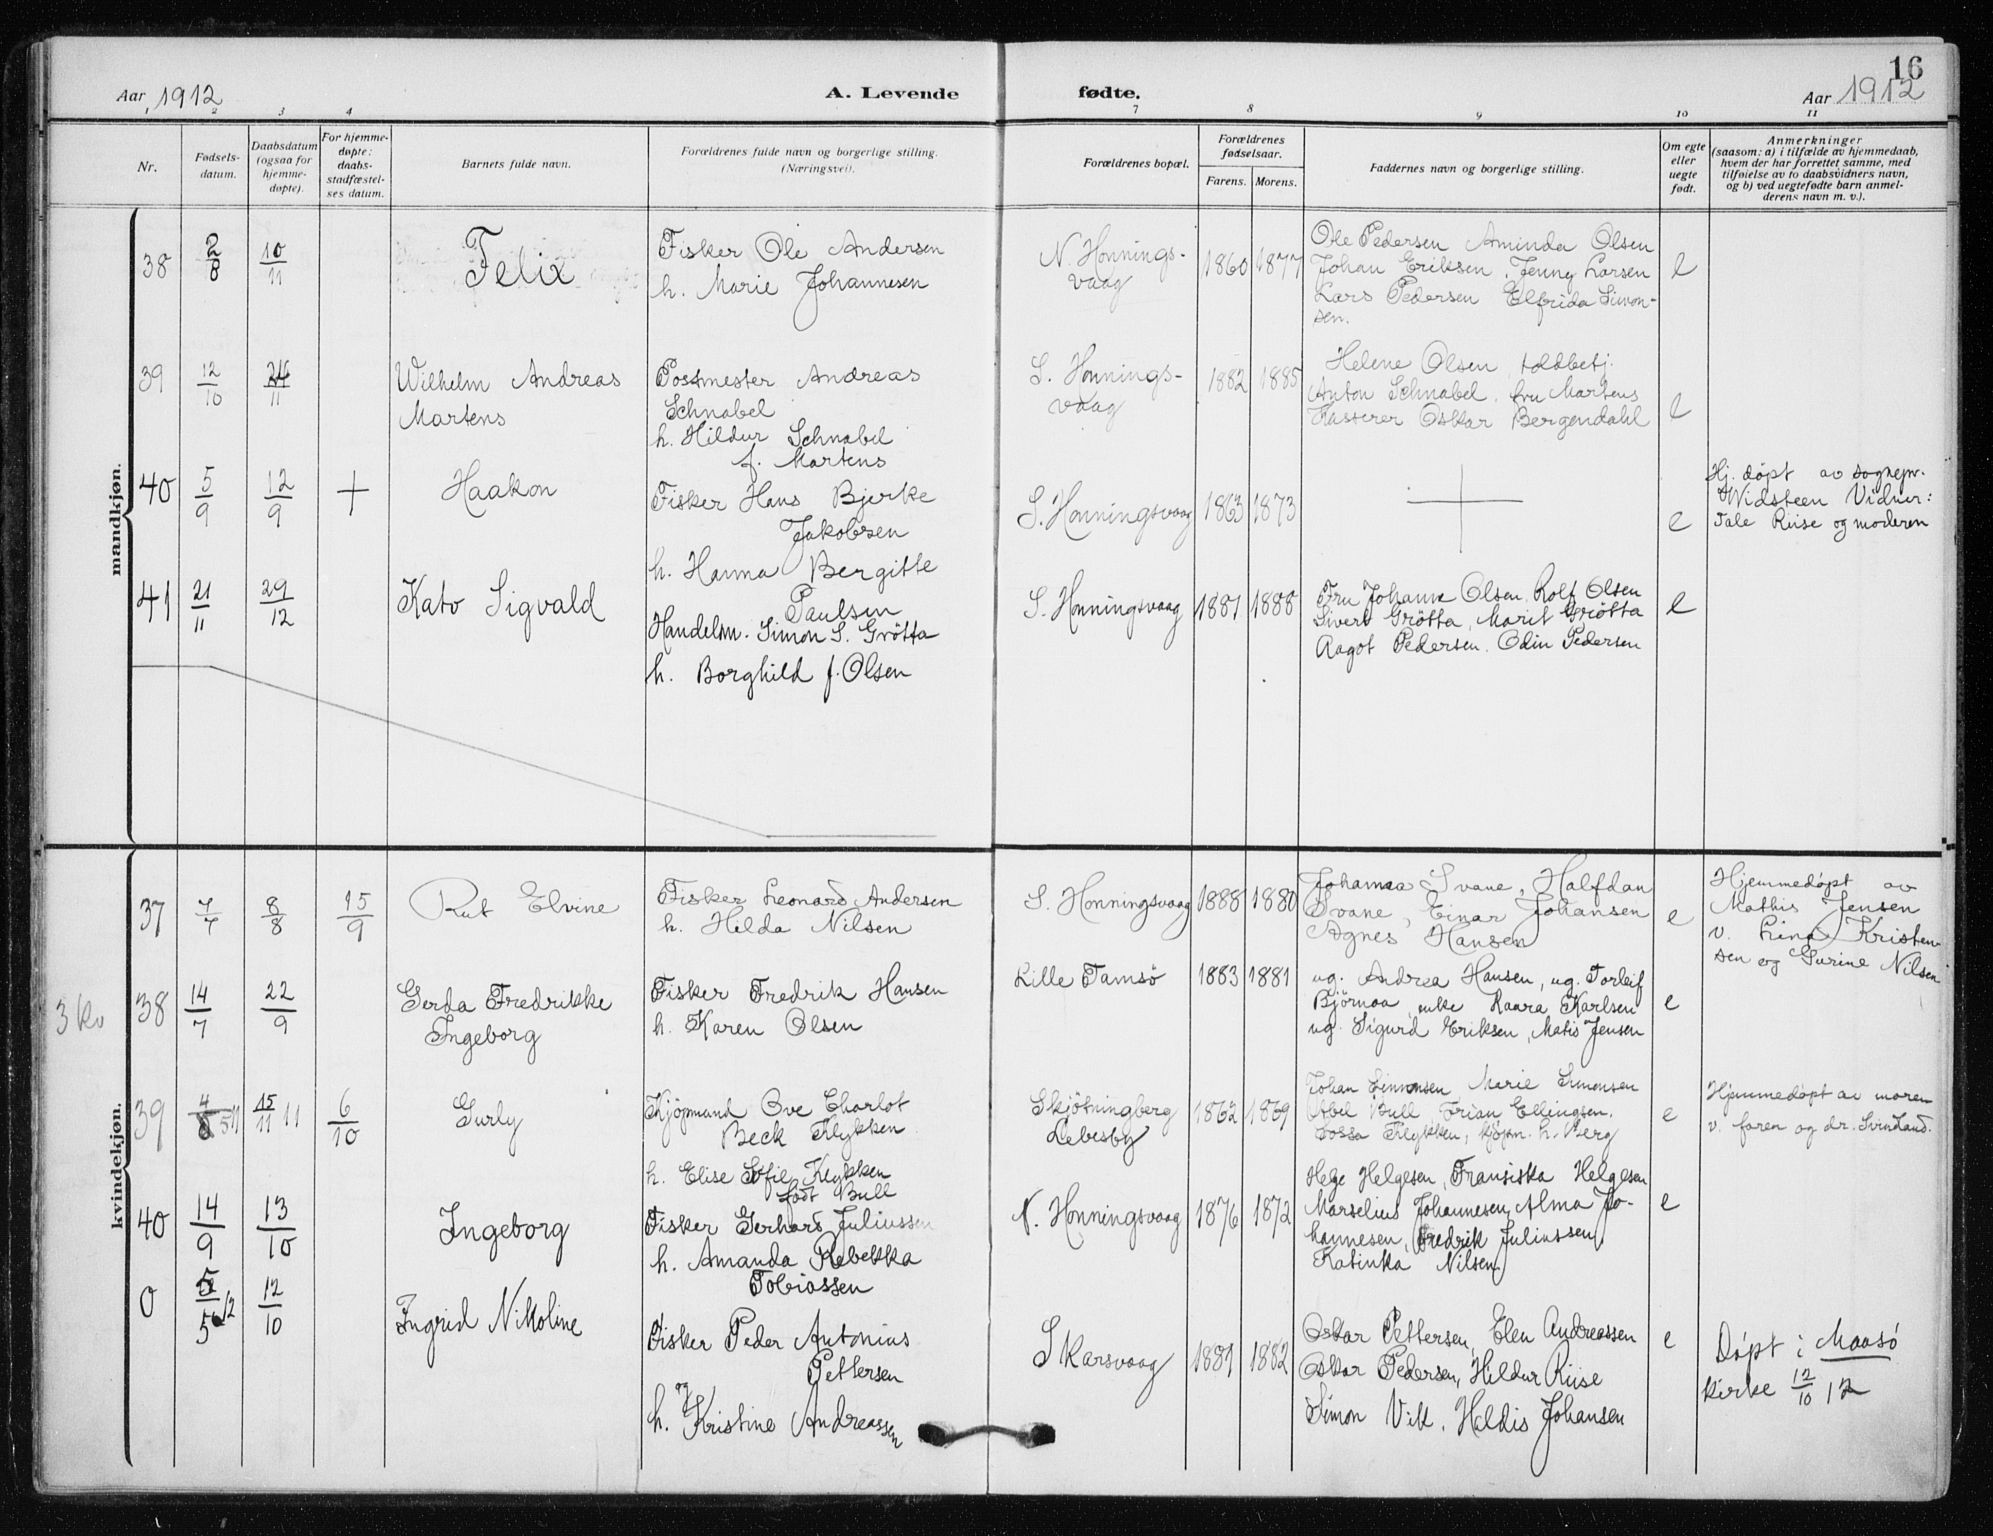 16
Aar 1912
A. Levende fødte.
Aar 1912
1 2 3 4 7 8 9 10 11
Nr.
Fødsels-
datum.
Daabsdatum
(ogsaa for
hjemme-
døpte).
For hjemme-
døpte:
daabs-
stadfæstel-
ses datum.
Barnets fulde navn.
Forældrenes fulde navn og borgerlige stilling.
(Næringsvei).
Forældrenes bopæl.
Forældrenes
fødselsaar.
Farens. Morens.
Faddernes navn og borgerlige stilling.
Om egte
eller
uegte
født.
Anmerkninger
(saasom: a) i tilfælde av hjemmedaab,
hvem der har forrettet samme, med
tilføielse av to daabsvidners navn,
og b) ved uegtefødte barn anmel-
derens navn m. v.).
mandkjøn.
38 2/8 10/11 Felix
Fisker Ole Andersen
h. Marie Johannesen
N. Honnings-
vaag
1860 1877
Ole Pedersen Aminda Olsen
Johan Eriksen, Jenny Larsen
Lars Pedersen Elfrida Simon-
sen.
e
39 12/10 24/11 Wilhelm Andreas
Martens
Postmester Andreas
Schnabel
h. Hildur Schnabel
f. Martens
S. Honnings-
vaag
1882 1885
Helene Olsen, toldbetj.
Anton Schnabel, fru Martens
Kasserer Oskar Bergendahl
e
40 5/9 12/9 + Haakon
Fisker Hans Bjerke
Jakobsen
h. Hanna Bergitte
Paulsen
S. Honningsvaag
1863 1873
e
Hj. døpt av sognepr.
Widsteen Vidner:
Tale Riise og moderen
41 21/11 29/12 Kato Sigvald
Handelsm. Simon S. Grötta
h. Borghild f. Olsen
S. Honningsvaag
1881 1888
Fru Johanne Olsen, Rolf Olsen
Sivert Grötta, Marit Grötta
Aagot Pedersen, Odin Pedersen
e
kvindekjøn.
37 7/7 8/8 15/9 Rut Elvine
Fisker Leonard Andersen
h. Hilda Nilsen
S. Honningsvaag
1888 1880
Johanna Svane, Halfdan
Svane, Einar Johansen
Agnes Hansen
e
Hjemmedøpt av
Mathis Jensen
v. Lina Kristen-
sen og Gurine Nilsen
3 kv
38 14/7 22/9 Gerda Fredrikke
Ingeborg
Fisker Fredrik Hansen
h. Karen Olsen
Lille Tamsø
1883 1881
ug. Andrea Hansen, ug. Torleif
Björnaa, enke Kaara Karlsen
ug. Sigurd Eriksen, Matis Jensen
e
39 4/8 5 11 15/11 11 6/10 Gurly
Kjöpmand Ove Charlot
Beck Klykken
h. Elise Sofie Klykken
født Bull
Skjötningberg
Lebesby
1862 1869
Johan Simonsen Marie Simonsen
Abel Bull, Ellingsen,
Klykken, kjöpm. h. Berg
e
Hjemmedøpt av moren
v. faren og dr. Svindland.
40 14/9 13/10 Ingeborg
Fisker Gerhard Juliussen
h. Amanda Rebekka
Tobiassen
N. Honningsvaag
1876 1872
Helge Helgesen, Fransiska Helgesen
Marselius Johannesen, Alma Jo-
hannesen, Fredrik Juliussen,
Katinka Nilsen
e
0 5/5 12 12/10 Ingrid Nikoline
Fisker Peder Antonius
Pettersen
og
h. Kristine Andreassen
Skarsvaag
1881 1882
Oskar Pettersen, Elen Andreassen
Oskar Pedersen, Hildur Riise
Simon Vik, Heldis Johansen
e
Døpt i Maasö
kirke 12/10 12